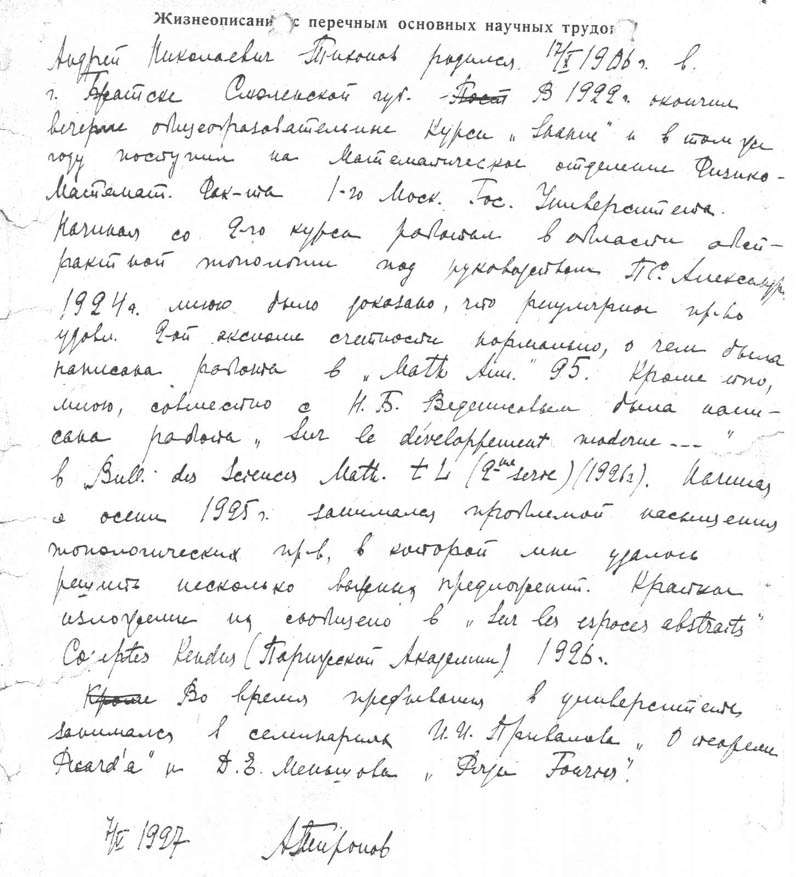 Жизнеописание с перечным основных научных трудов
Андрей Николаевич Тихонов родился 17/X 1906 г. в
г. Гжатске Смоленской губ. Пост В 1922 г. окончил
вечерние общеобразовательные курсы „Знание" и в том же
году поступил на Математическое отделение Физико-
Математ. Фак-та 1-го Моск. Гос. Университета.
Начиная со 2-го курса работал в области абст-
рактной топологии под руководством П.С. Александр.
1924 г. мною было доказано, что регулярное пр-во
удовл. 2-ой аксиоме счетности нормально, о чем была
написана работа в „Math Ann." 95. Кроме того,
мною, совместно с Н.Б. Веденисовым была напи-
сана работа „Sur le développement moderne ---"
в „Bull. des Sciences Math. t L (2-me serie) (1926 г). Начиная
с осени 1925 г. занимался проблемой насыщения
топологических пр-в, в которой мне удалось
решить несколько важных предложений. Краткое
изложение их сообщено в „Sur les espaces abstraits"
Comptes Rendus (Парижской Академии) 1926 г.
Кроме Во время пребывания в университете
занимался в семинариях И.И. Привалова „О теореме
Picard'a" и Д.Е. Меньшова „Ряды Fourier".
1927 АТихонов